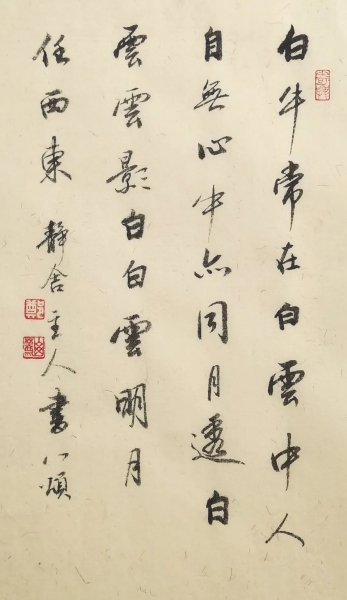 白牛常在白雲中人
自無心牛亦同月透白
雲雲影白白雲明月
任西東 靜舍主人書八頌